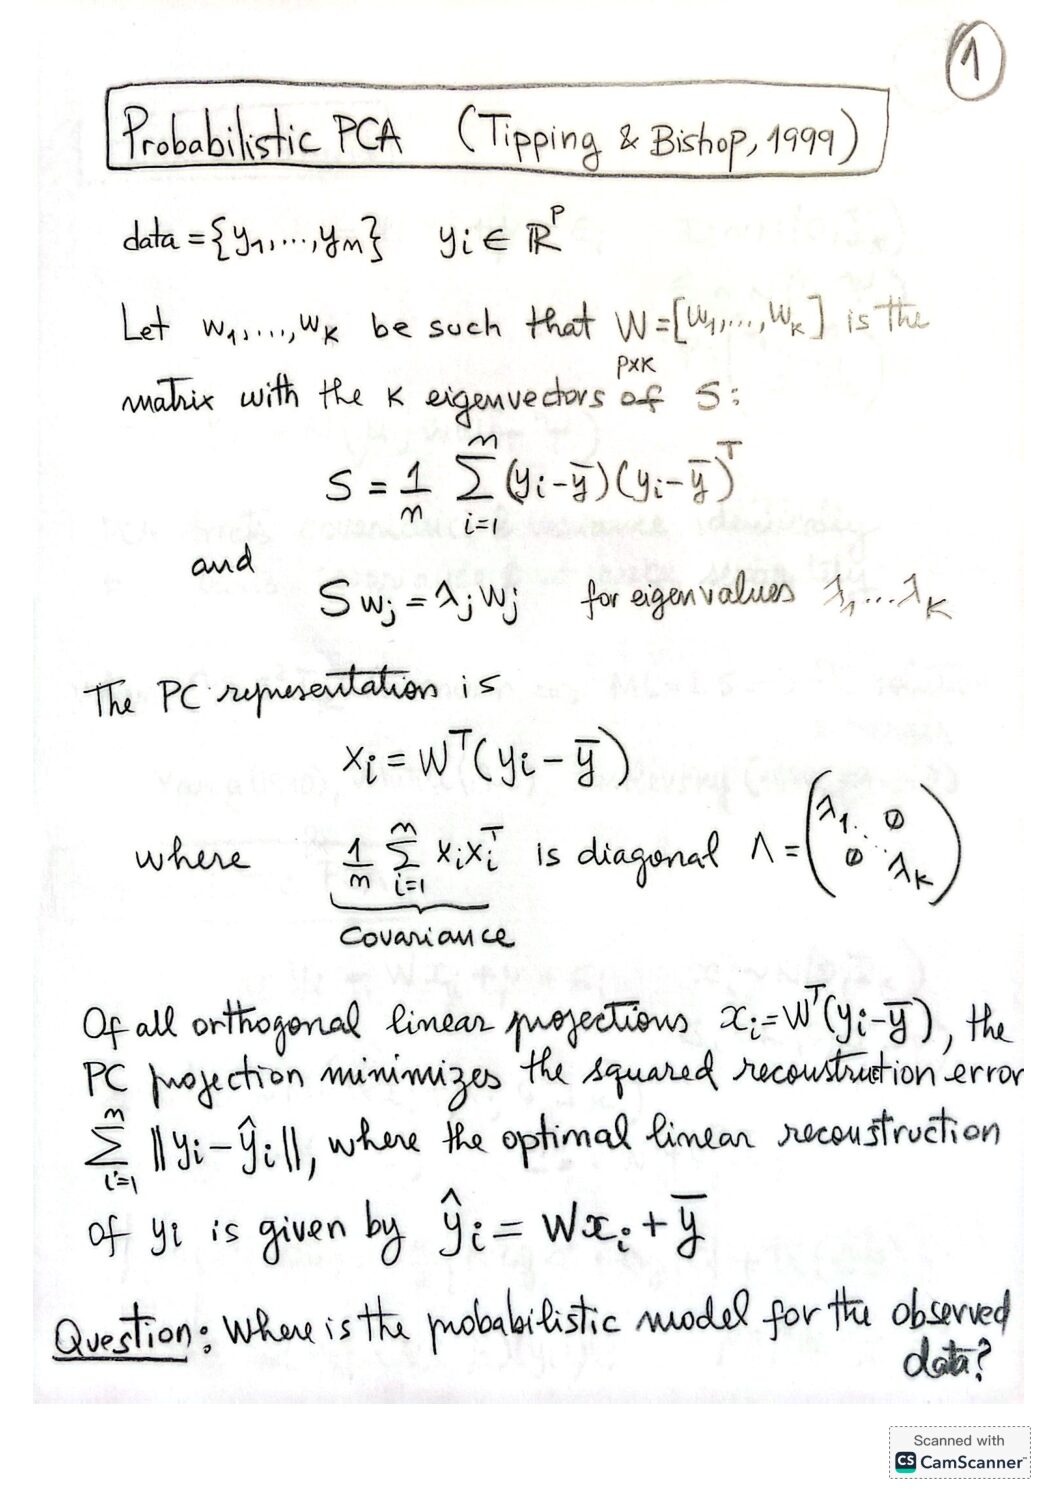 1
Probabilistic PCA (Tipping & Bishop, 1999)
data = {y₁, ..., yₙ} yᵢ ∈ ℝᵖ
Let w₁, ..., w_K be such that W = [w₁, ..., w_K] is the
p×K
matrix with the K eigenvectors of S:
S = 1/n Σᵢ₌₁ⁿ (yᵢ - ȳ)(yᵢ - ȳ)ᵀ
and
S wⱼ = λⱼ wⱼ for eigenvalues λ₁ ... λ_K
The PC representation is
xᵢ = Wᵀ(yᵢ - ȳ)
where 1/n Σᵢ₌₁ⁿ xᵢxᵢᵀ is diagonal Λ = (λ₁ ⋱ 0 0 ⋱ λ_K)
covariance
Of all orthogonal linear projections xᵢ = Wᵀ(yᵢ - ȳ), the
PC projection minimizes the squared reconstruction error
Σᵢ₌₁ⁿ ||yᵢ - ŷᵢ||, where the optimal linear reconstruction
of yᵢ is given by ŷᵢ = Wxᵢ + ȳ
Question: Where is the probabilistic model for the observed
data?
Scanned with
CS CamScanner